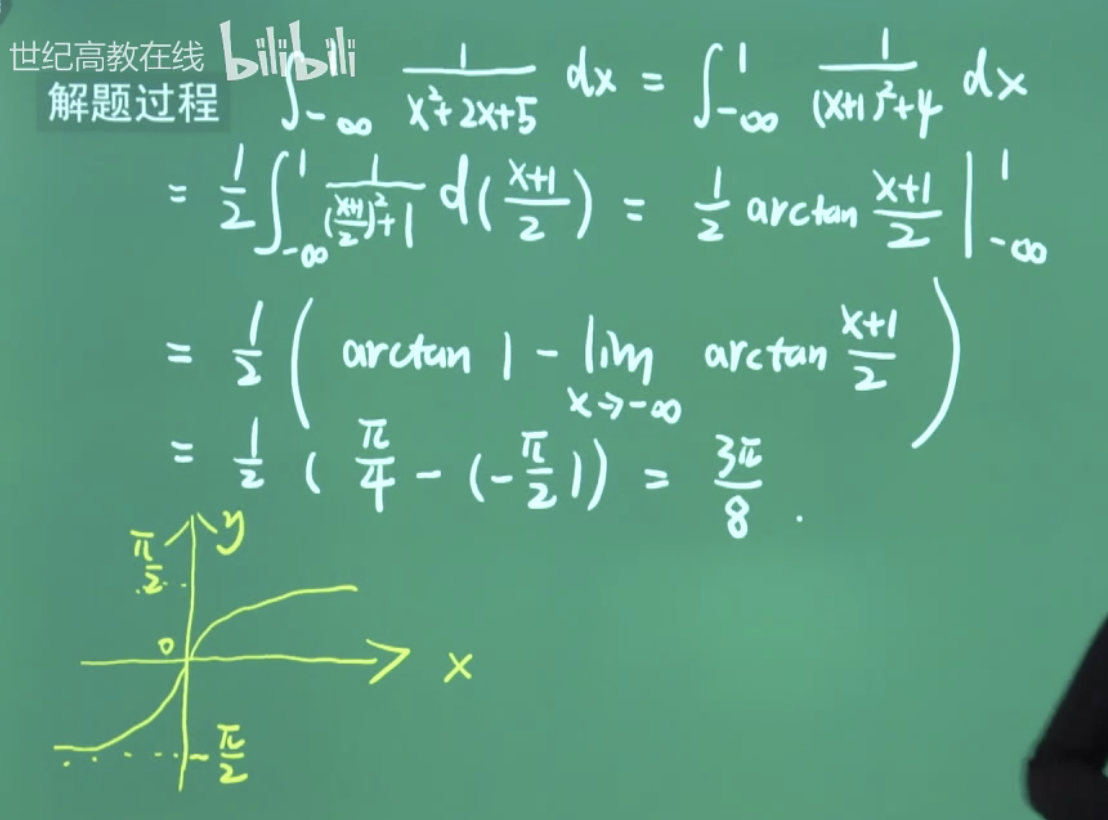 世纪高教在线 bilibili
解题过程
∫_{-∞} 1/(x²+2x+5) dx = ∫_{-∞}^{1} 1/((x+1)²+4) dx
= 1/2 ∫_{-∞}^{1} 1/(((x+1)/2)²+1) d((x+1)/2) = 1/2 arctan (x+1)/2 |_{-∞}^{1}
= 1/2 ( arctan 1 - lim_{x→-∞} arctan (x+1)/2 )
= 1/2 ( π/4 - (-π/2)) = 3π/8 .
y
π/2
0
x
-π/2